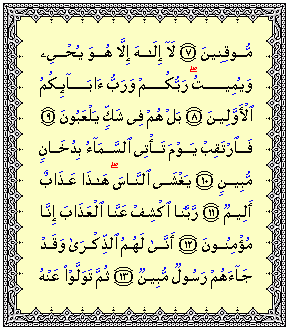 مُّوقِنِينَ ٧ لَآ إِلَـٰهَ إِلَّا هُوَ يُحْىِۦ
وَيُمِيتُ ۖ رَبُّكُمْ وَرَبُّ ءَابَآئِكُمُ
ٱلْأَوَّلِينَ ٨ بَلْ هُمْ فِى شَكٍّ يَلْعَبُونَ ٩
فَٱرْتَقِبْ يَوْمَ تَأْتِى ٱلسَّمَآءُ بِدُخَانٍ
مُّبِينٍ ١٠ يَغْشَى ٱلنَّاسَ ۖ هَـٰذَا عَذَابٌ
أَلِيمٌ ١١ رَّبَّنَا ٱكْشِفْ عَنَّا ٱلْعَذَابَ إِنَّا
مُؤْمِنُونَ ١٢ أَنَّىٰ لَهُمُ ٱلذِّكْرَىٰ وَقَدْ
جَآءَهُمْ رَسُولٌ مُّبِينٌ ١٣ ثُمَّ تَوَلَّوْا۟ عَنْهُ